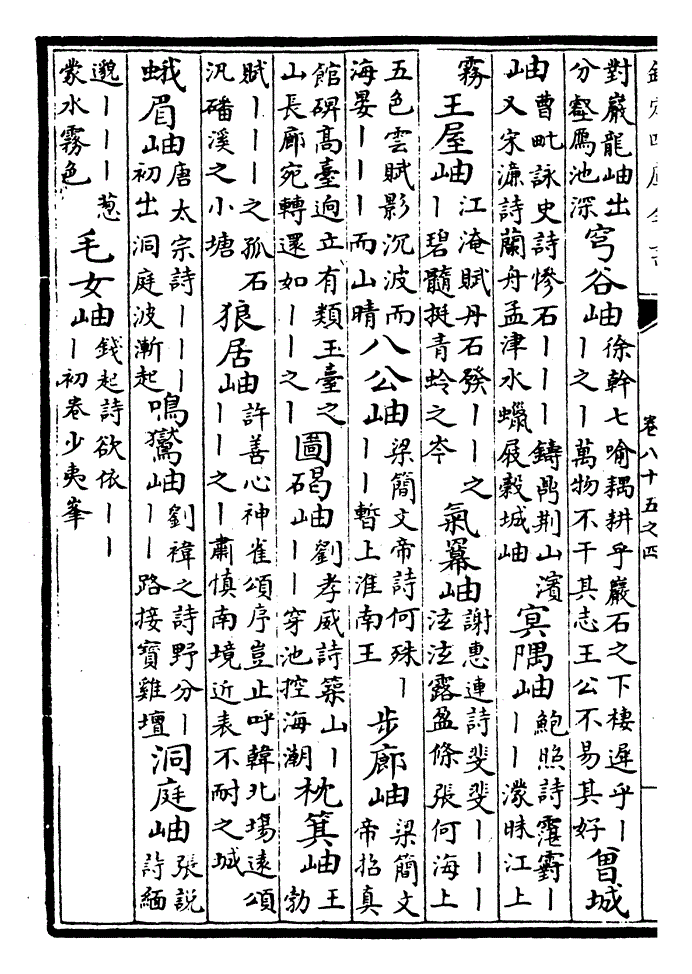 欽定四庫全書
卷八十五之四
對巖龍岫出
分壑鴈池深
穹谷岫
徐幹七喻耦耕乎巖石之下棲遲乎丨
丨之丨萬物不干其志王公不易其好
曾城
岫
曹毗詠史詩慘石丨丨丨鑄鼎荆山濱
又宋濂詩蘭舟孟津水蠟屐穀城岫
冥隅岫
鮑照詩霮䨴丨
丨丨濛昧江上
霧
王屋岫
江淹賦丹石發丨丨之
丨碧髓挺青蛉之岑
氣羃岫
謝惠連詩斐斐丨丨丨
泫泫露盈條張何海上
五色雲賦影沉波而
海晏丨丨丨而山晴
八公岫
梁簡文帝詩何殊丨
丨丨暫上淮南王
步廊岫
梁簡文
帝招真
館碑高臺逈立有類玉臺之
山長廊宛轉還如丨丨之丨
圖碣岫
劉孝威詩築山丨
丨丨穿池控海潮
枕箕岫
王
勃
賦丨丨丨之孤石
汎磻溪之小塘
狼居岫
許善心神雀頌序豈止呼韓北場遠頌
丨丨之丨肅慎南境近表不耐之城
蛾眉岫
唐太宗詩丨丨丨
初出洞庭波漸起
鳴鸑岫
劉禕之詩野分丨
丨丨路接寶雞壇
洞庭岫
張說
詩緬
邈丨丨丨葱
蒙水霧色
毛女岫
錢起詩欲依丨丨
丨初卷少夷峯